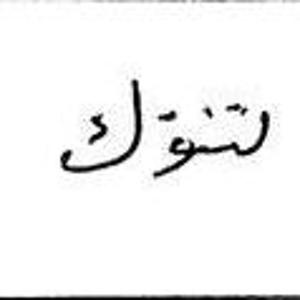 لتنوّك